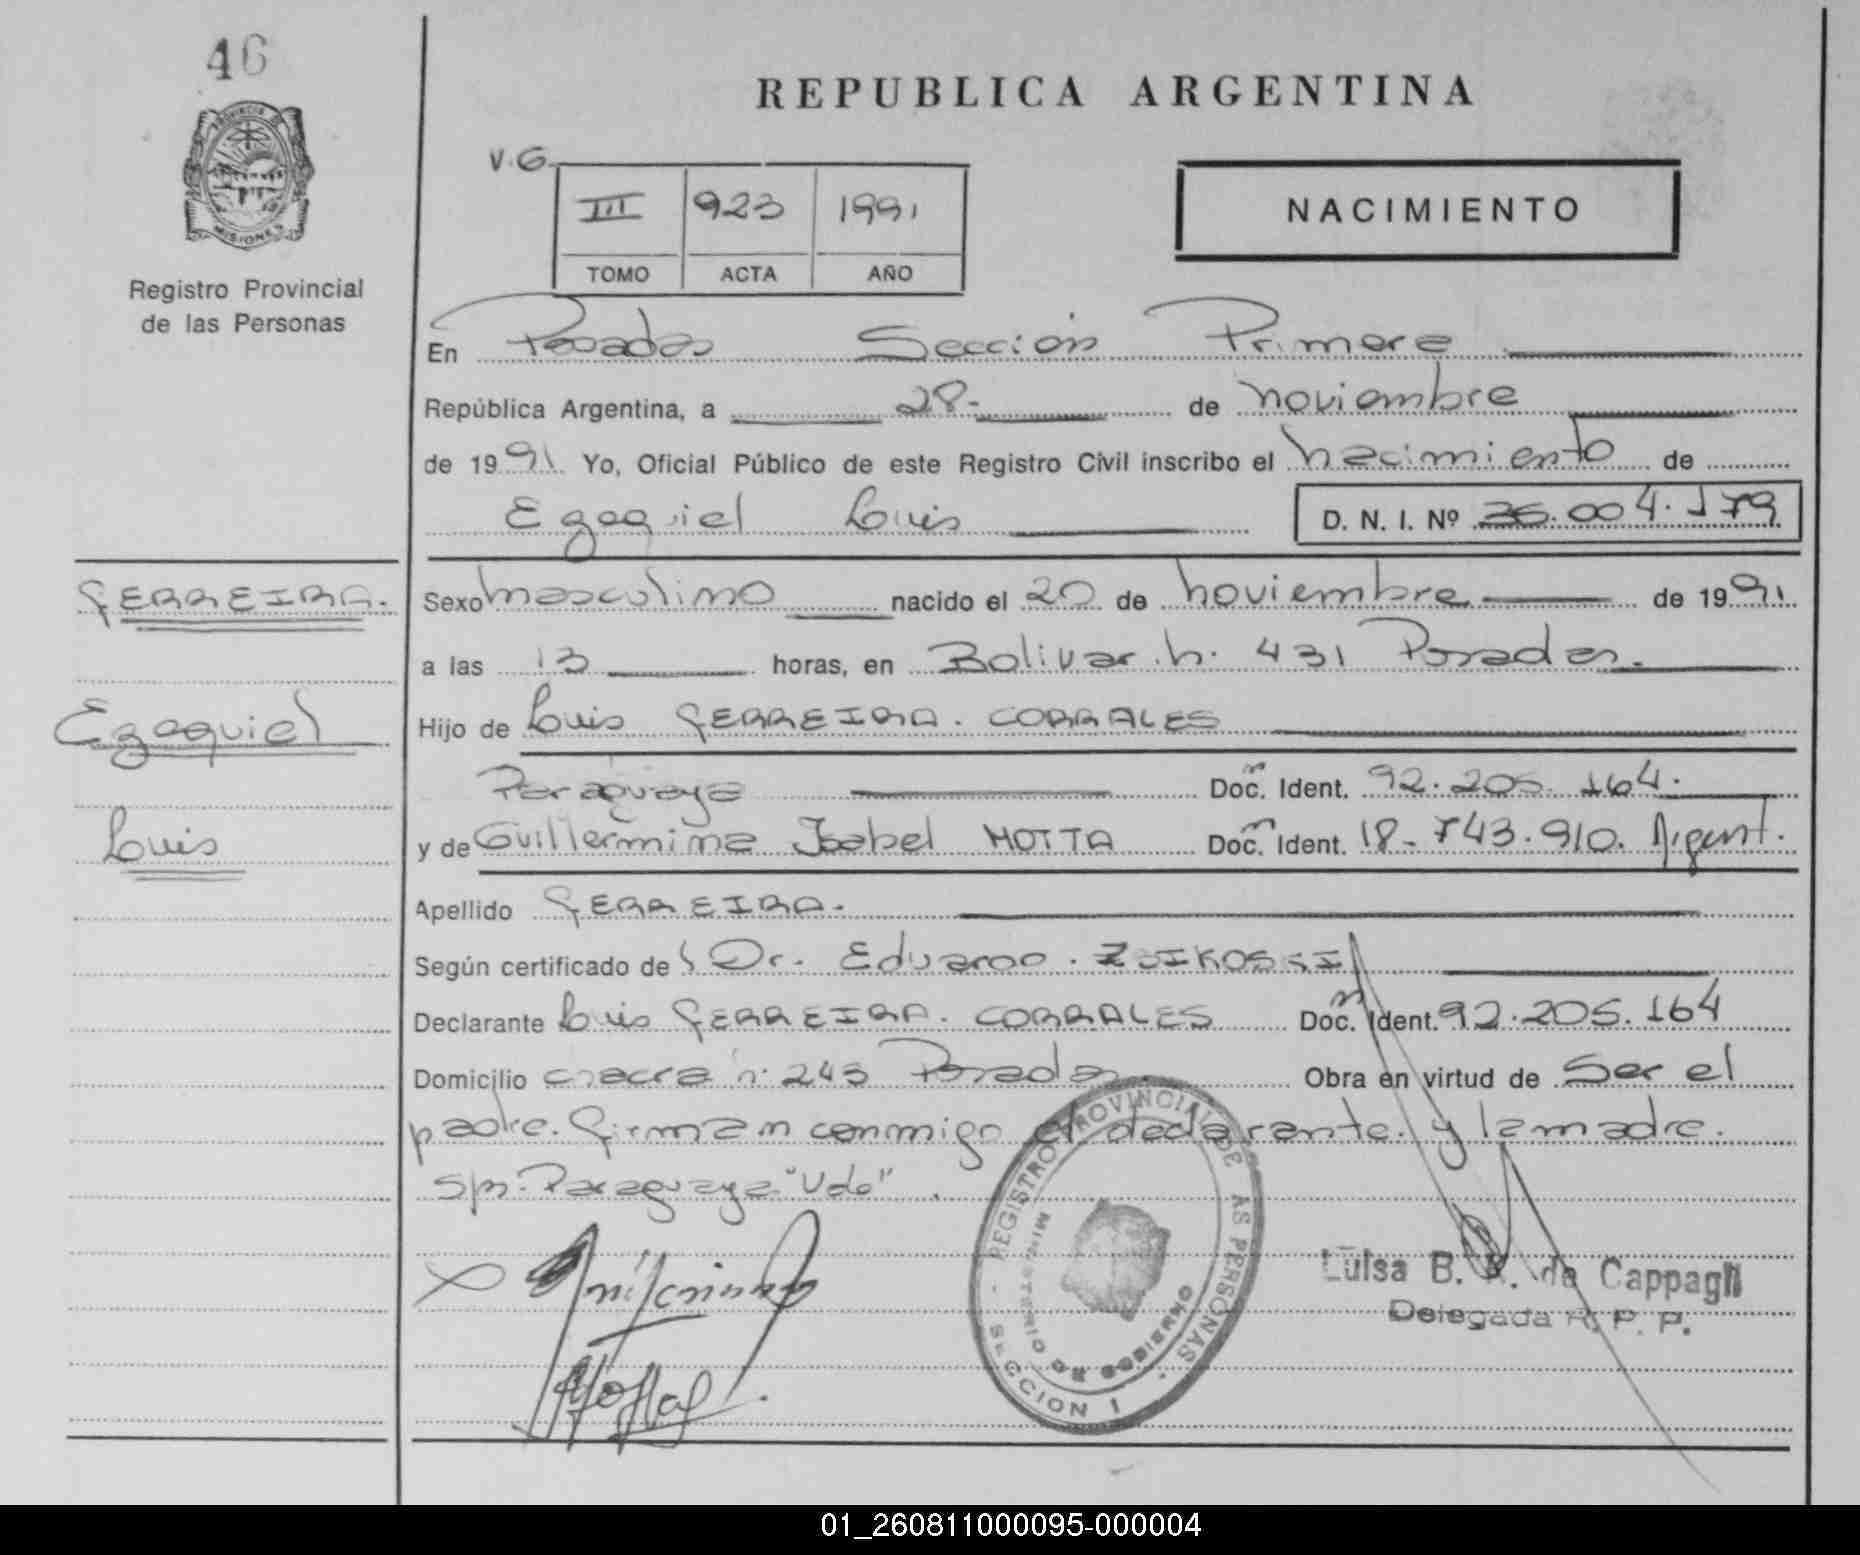 46
REPUBLICA ARGENTINA
PROVINCIA DE
MISIONES
Registro Provincial
de las Personas
V.G.
III 923 1991
TOMO ACTA AÑO
NACIMIENTO
En Posadas Sección Primera
República Argentina, a 28- de noviembre
de 1991 Yo, Oficial Público de este Registro Civil inscribo el nacimiento de
Ezequiel Luis D. N. I. Nº 36.004.179
FERREIRA.
Ezequiel
Luis
Sexo masculino nacido el 20 de noviembre de 1991
a las 13 horas, en Bolivar n. 431 Posadas.
Hijo de Luis FERREIRA. CORRALES
Paraguaya Doc. Ident. 92.205.164.
y de Guillermina Isabel MOTTA Doc. Ident. 18-743.910. Argent.
Apellido FERREIRA.
Según certificado de Dr. Eduardo.
Declarante Luis FERREIRA. CORRALES Doc. Ident. 92.205.164
Domicilio chacra n. 245 Posadas. Obra en virtud de Ser el
padre. firman conmigo el declarante. y la madre.
S/r. Paraguaya "Vale".
REGISTRO PROVINCIAL DE LAS PERSONAS - SECCION I
MINISTERIO DE GOBIERNO
Luisa B. de Cappagli
Delegada R. P. P.
01_260811000095-000004